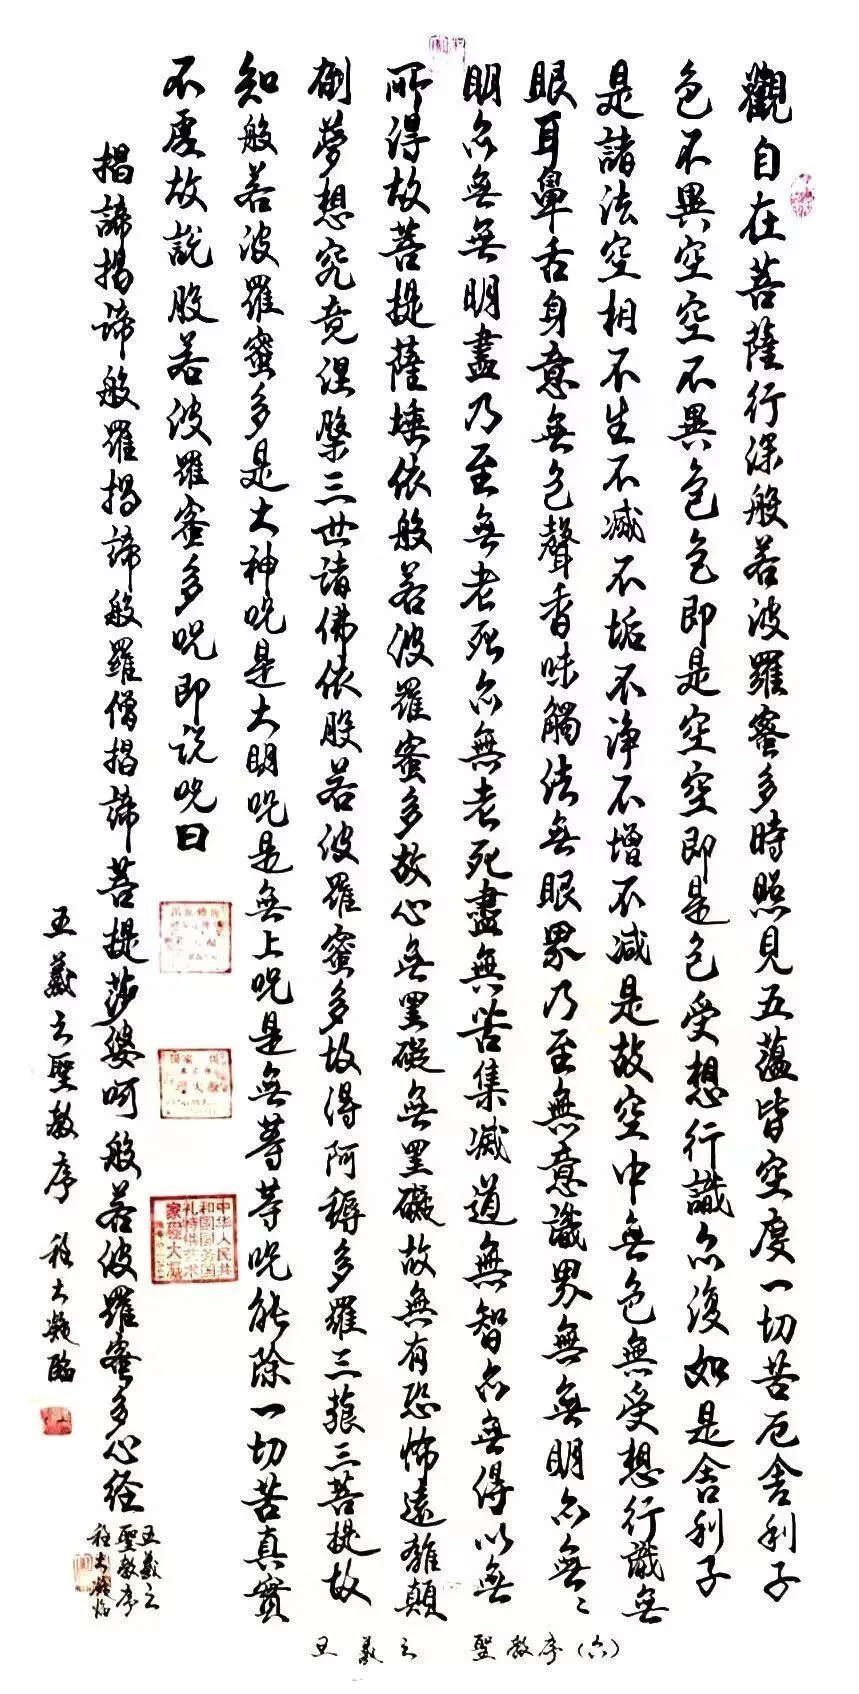 觀自在菩薩行深般若波羅蜜多時照見五蘊皆空度一切苦厄舍利子
色不異空空不異色色即是空空即是色受想行識亦復如是舍利子
是諸法空相不生不滅不垢不淨不增不減是故空中無色無受想行識無
眼耳鼻舌身意無色聲香味觸法無眼界乃至無意識界無無明亦無〻
明亦無無明盡乃至無老死亦無老死盡無苦集滅道無智亦無得以無
所得故菩提薩埵依般若波羅蜜多故心無罣礙無罣礙故無有恐怖遠離顛
倒夢想究竟涅槃三世諸佛依般若波羅蜜多故得阿耨多羅三藐三菩提故
知般若波羅蜜多是大神咒是大明咒是無上咒是無等等咒能除一切苦真實
不虛故說般若波羅蜜多咒即說咒曰
揭諦揭諦般羅揭諦般羅僧揭諦菩提莎婆呵般若波羅蜜多心经
王羲之
聖教序
王羲之聖教序 程大凝臨
中华人民共
和国国务国
礼特供艺术
家程大凝
王羲之 聖教序(六)